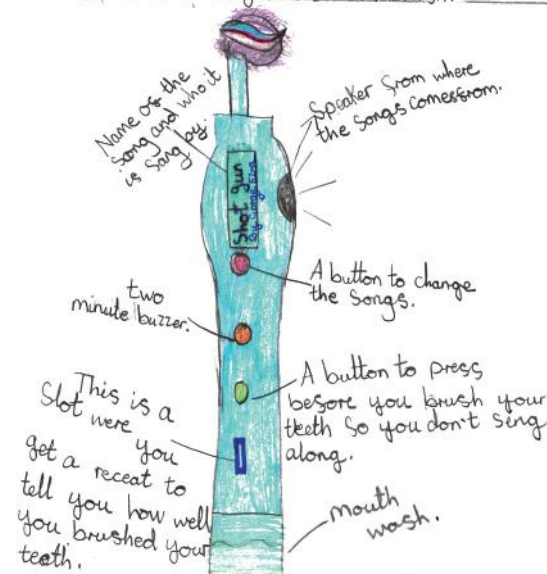 Name of the
song and who it
is sang by.
Speaker from where
the songs comesfrom.
Shot gun
By George Ezra
A button to change
the songs.
two
minute buzzer.
A button to press
before you brush your
teeth so you don't sing
along.
This is a
slot were you
get a receat to
tell you how well
you brushed your
teeth.
mouth
wash.